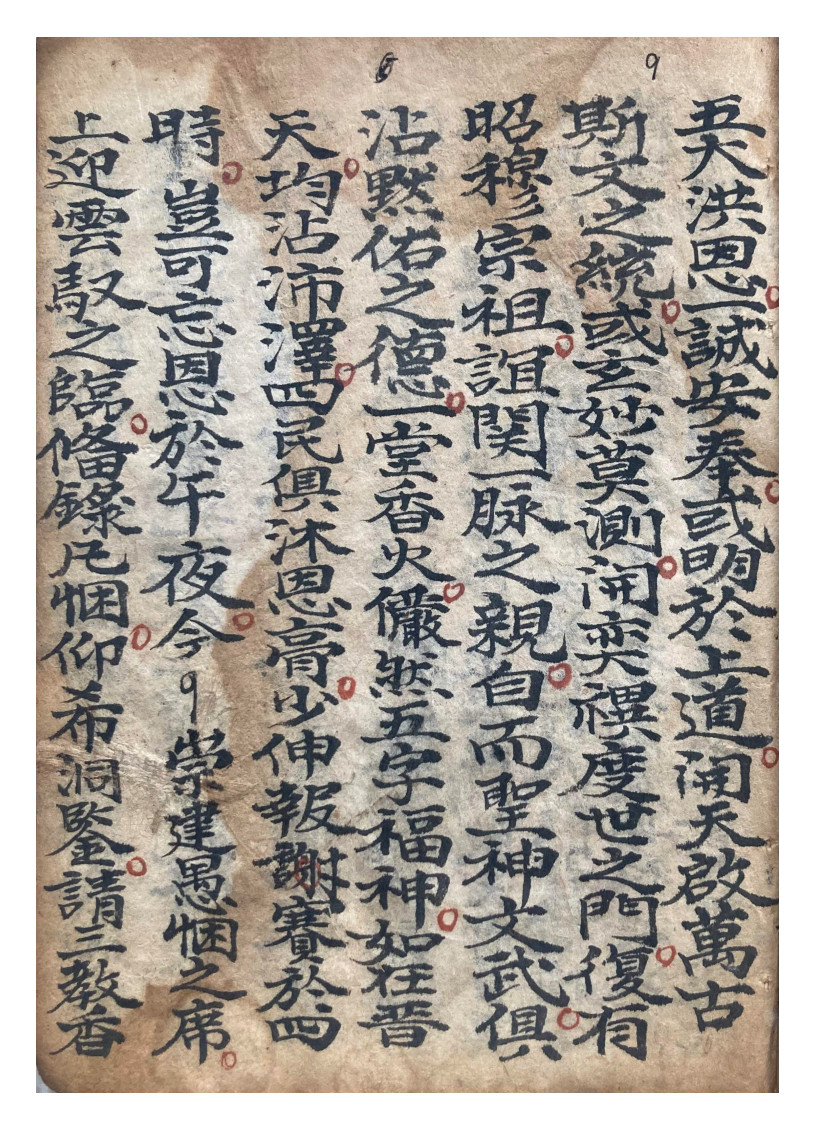 9
吾天洪恩一誠安奉或明於上道開天啟萬古
斯文之統或玄妙莫測開奕禩度世之門復有
昭穆宗祖誼関一脉之親自而聖神文武俱
沾黙佑之德一堂香火儼然五字福神如在晋
天均沾沛澤四民俱沐恩膏少伸報謝賽於四
時豈可忘恩於午夜今9崇建愚悃之席
上迎雲馭之臨俻錄凡悃仰希洞鑒請三教香